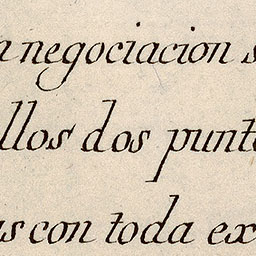 a negociacion s
llos dos punto
as con toda ex